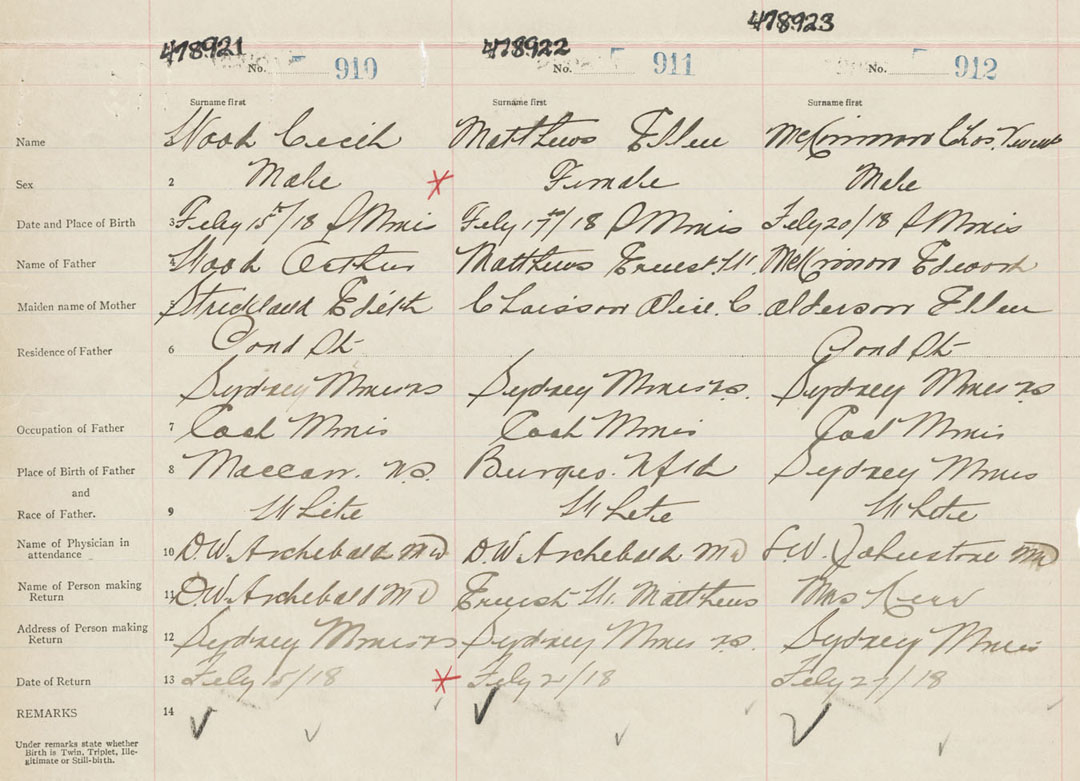 478921 478922 478923
No. 910 No. 911 No. 912
Surname first Surname first Surname first
Name Wood Cecil Matthews Ellen McKinnon Chas. Vincent
Sex 2 Male Female Male
Date and Place of Birth 3 Feby 15th/18 S Mines Feby 17th/18 S Mines Feby 20/18 S Mines
Name of Father 4 Wood Arthur Matthews Ernest W. McKinnon Edward
Maiden name of Mother 5 Strickland Edith Chaisson Alice C. Alderson Ellen
Residence of Father 6 Pond St Pond St
Sydney Mines NS Sydney Mines N.S. Sydney Mines NS
Occupation of Father 7 Coal Mines Coal Mines Coal Mines
Place of Birth of Father 8 Maccan. N.S. Burgeo. Nfld Sydney Mines
and
Race of Father. 9 White White White
Name of Physician in
attendance 10 D.W. Archebald MD D.W. Archebald MD Johnstone MD
Name of Person making
Return 11 D.W. Archebald MD Ernest W. Matthews Mrs Kerr
Address of Person making
Return 12 Sydney Mines NS Sydney Mines N.S. Sydney Mines
Date of Return 13 Feby 15/18 Feby 21/18 Feby 27/18
REMARKS 14
Under remarks state whether
Birth is Twin, Triplet, Ille-
gitimate or Still-birth.